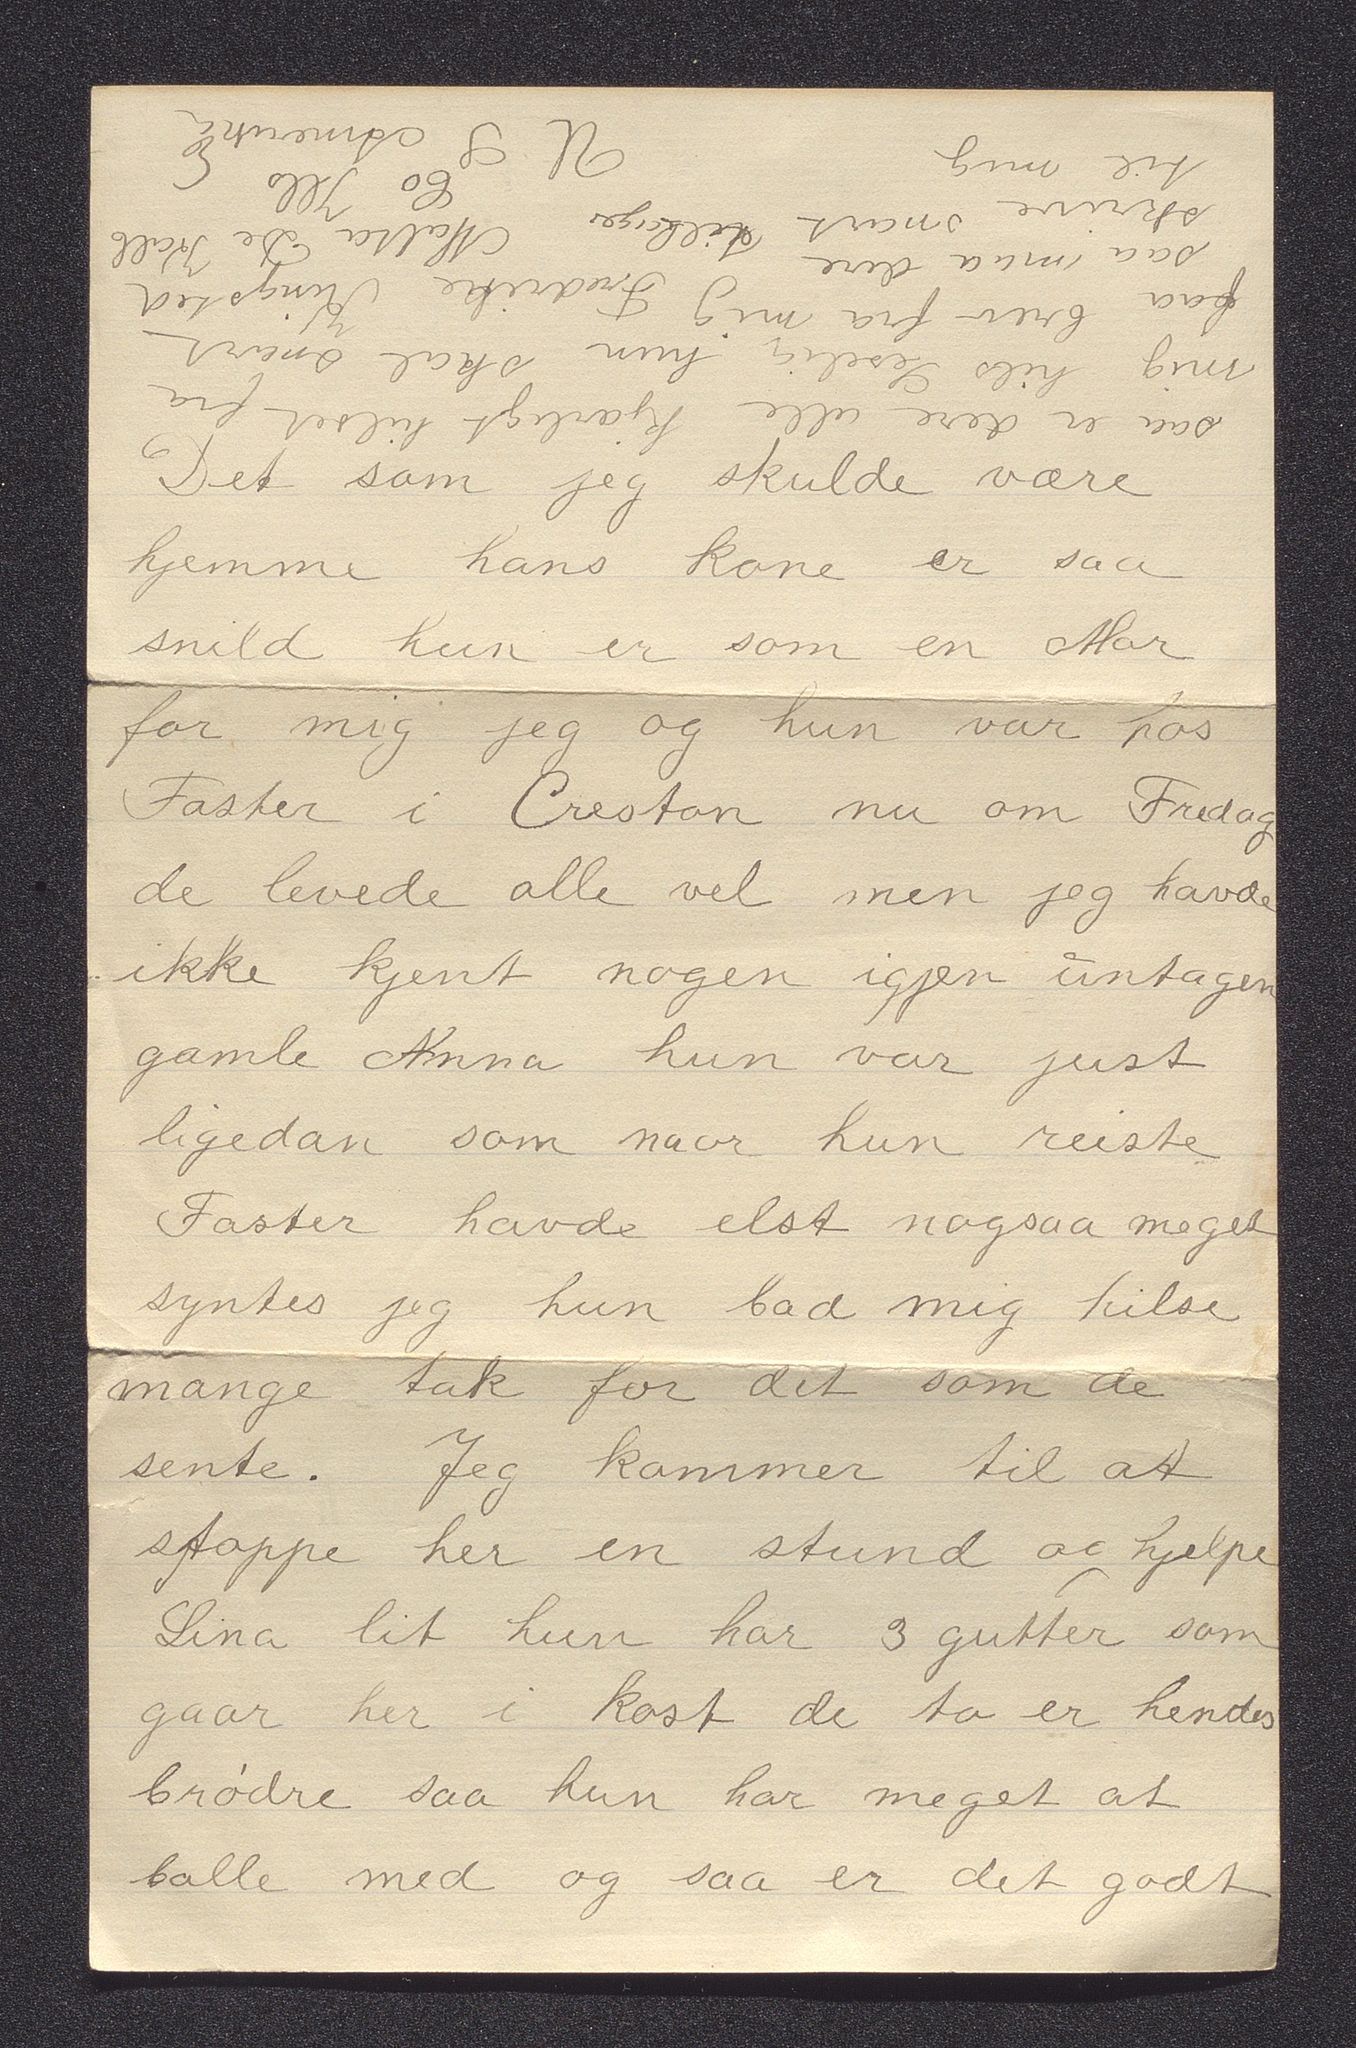 Det som jeg skulde være
hjemme hans kone er saa
snild hun er som en Mor
for mig jeg og hun var hos
Faster i Creston nu om Fredag
de levede alle vel men jeg havde
ikke kjent nogen igjen untagen
gamle Anna hun var just
ligedan som naar hun reiste
Faster havde elst nogsaa meget
syntes jeg hun bad mig hilse
mange tak for det som de
sente. Jeg kommer til at
stoppe her en stund og hjelpe
Lina lit hun har 3 gutter som
gaar her i kost de to er hendes
brødre saa hun har meget at
balle med og saa er det godt
saa er dere alle kjærligt hilset fra
mig hils Seselia hun skal snart
faa brev fra mig Fredrike Ringsted
saa maa dere
skrive snart
til mig
Malta De Kalb
Co Ills
U S Amerika